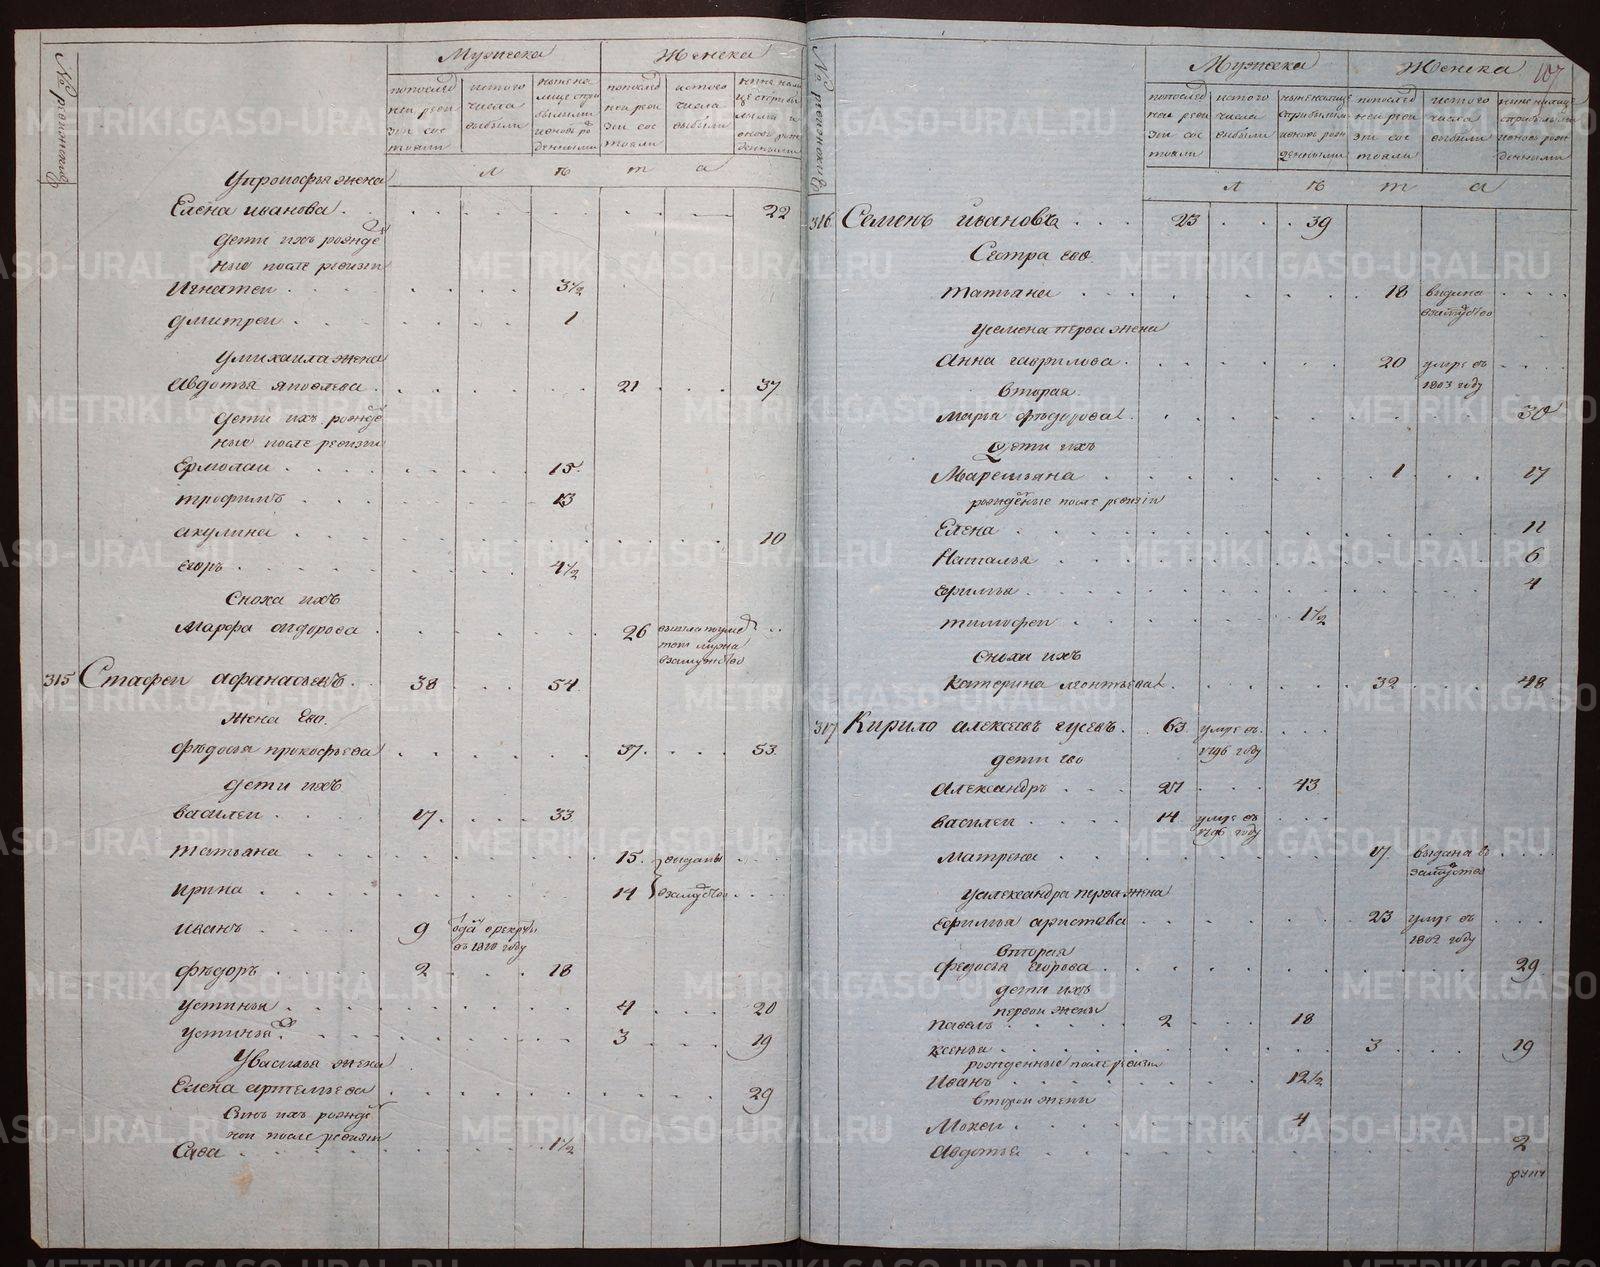 № ревижские
Мужеска
Женска
попослед
ней реви
зіи сос
тояли
истого
числа
выбыли
ныне на
лице
вновь ро
денными
попослед
ней реви
зіи сос
тояли
истого
числа
выбыли
л ѣ т а
Упрокофья жена
Елена иванова 22
дети ихъ рожде
ные после ревизіи
Игнатей 3½
дмитреи 1
Умихаила жена
Авдотья яковлева 21 37
дети ихъ рожде
ные после ревизіи
Ермолаи 15
трофимъ 13
акулина 10
егоръ 4½
Сноха ихъ
Марфа сидорова 26
315 Стафеи афанасьевъ 38 54
жена Ево
фѣдосья прокофьева 37 53
дети ихъ
василеи 17 33
татьяна 15 выданы
ирина 14 взамужство
иванъ 9 отдан врекруты
въ 1810 году
фѣдоръ 2 18
устинья 4 20
устинья 3 19
Увасилья жена
Елена артемьева 29
Сынъ ихъ рожде
ной после ревизіи
Сава 1½
107
№ ревижские
Мужеска
Женска
попослед
ней реви
зіи сос
тояли
истого
числа
выбыли
попослед
ней реви
зіи сос
тояли
истого
числа
выбыли
л ѣ т а
316 Семенъ ивановъ 23 39
Сестра ево
татьяна 18 выдана
взамужство
Усемена перва жена
Анна гаврилова 20 умре въ
1803 году
Вторая
Марья фѣдорова 30
Дети ихъ
Маремьяна 1 17
рожденые после ревизіи
Елена 11
Наталья 6
ефимья 4
тимофеи 1½
Сноха ихъ
Катерина леонтьева 32 48
317 Кирило алексеевъ гусевъ 63 умре въ
1796 году
дети ево
Александръ 27 43
василеи 14 умре въ
1796 году
матрена 17 выдана в
замужство
Уалександра перва жена
Ефимья аристова 23 умре въ
1802 году
Вторая
федосья егорова 29
дети ихъ
первои жены
павелъ 2 18
ксенья 3 19
рожденные после ревизіи
Иванъ 12½
второи жены
Мокеи 4
Авдотья 2